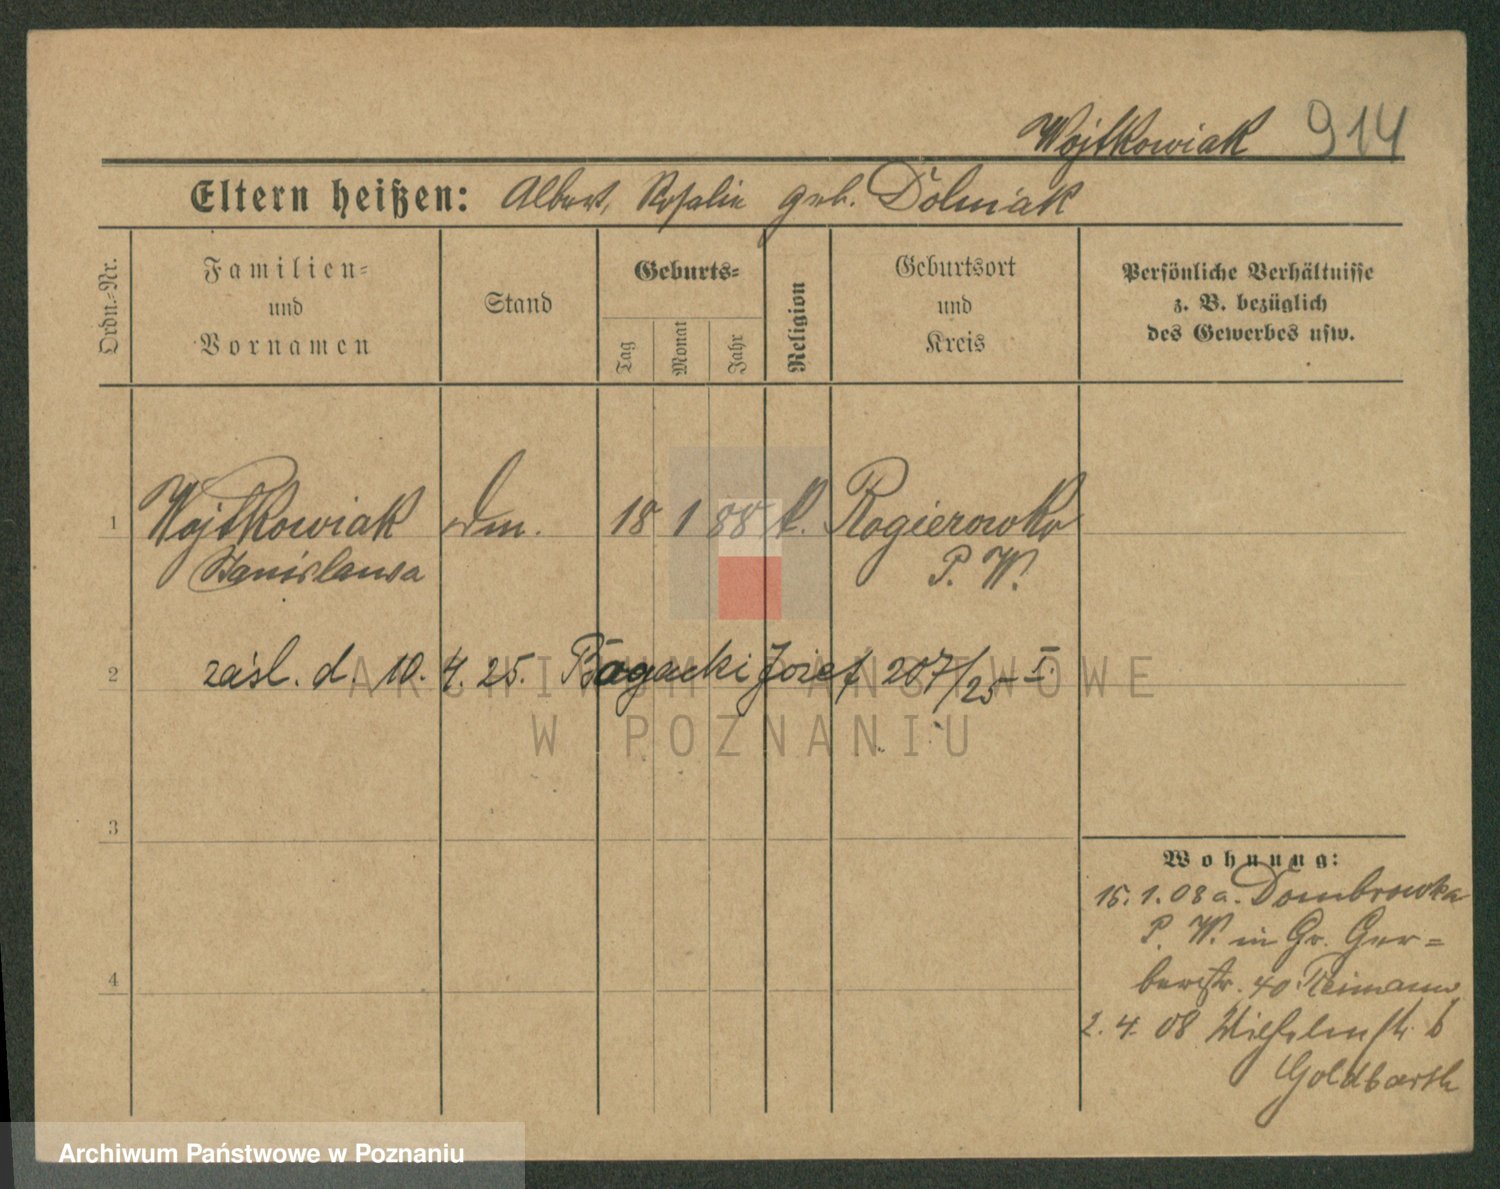 Wojtkowiak 914
Eltern heißen: Albert, Rosalie geb. Dolniak
Ordn.-Nr.
Familien-
und
Vornamen
Stand
Geburts-
Tag
Monat
Jahr
Religion
Geburtsort
und
Kreis
Persönliche Verhältnisse
z. B. bezüglich
des Gewerbes usw.
1 Wojtkowiak Dm. 18 1 88 k. Rogierowko
Stanislawa P. W.
2 zaśl. d. 10. 4. 25. Bagacki Jozef 207/25 I.
ARCHIWUM PAŃSTWOWE
W POZNANIU
3
Wohnung:
15. 1. 08 a. Dombrowka
P. W. in Gr. Ger=
berstr. 40 Reimann
4
2. 4. 08 Wilhelmstr. 6
Goldbarth
Archiwum Państwowe w Poznaniu